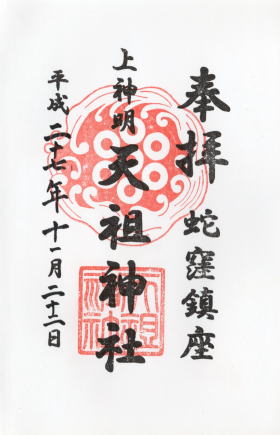 奉拝 蛇窪鎮座
上神明 天祖神社
平成二十七年十一月二十二日
天祖神社